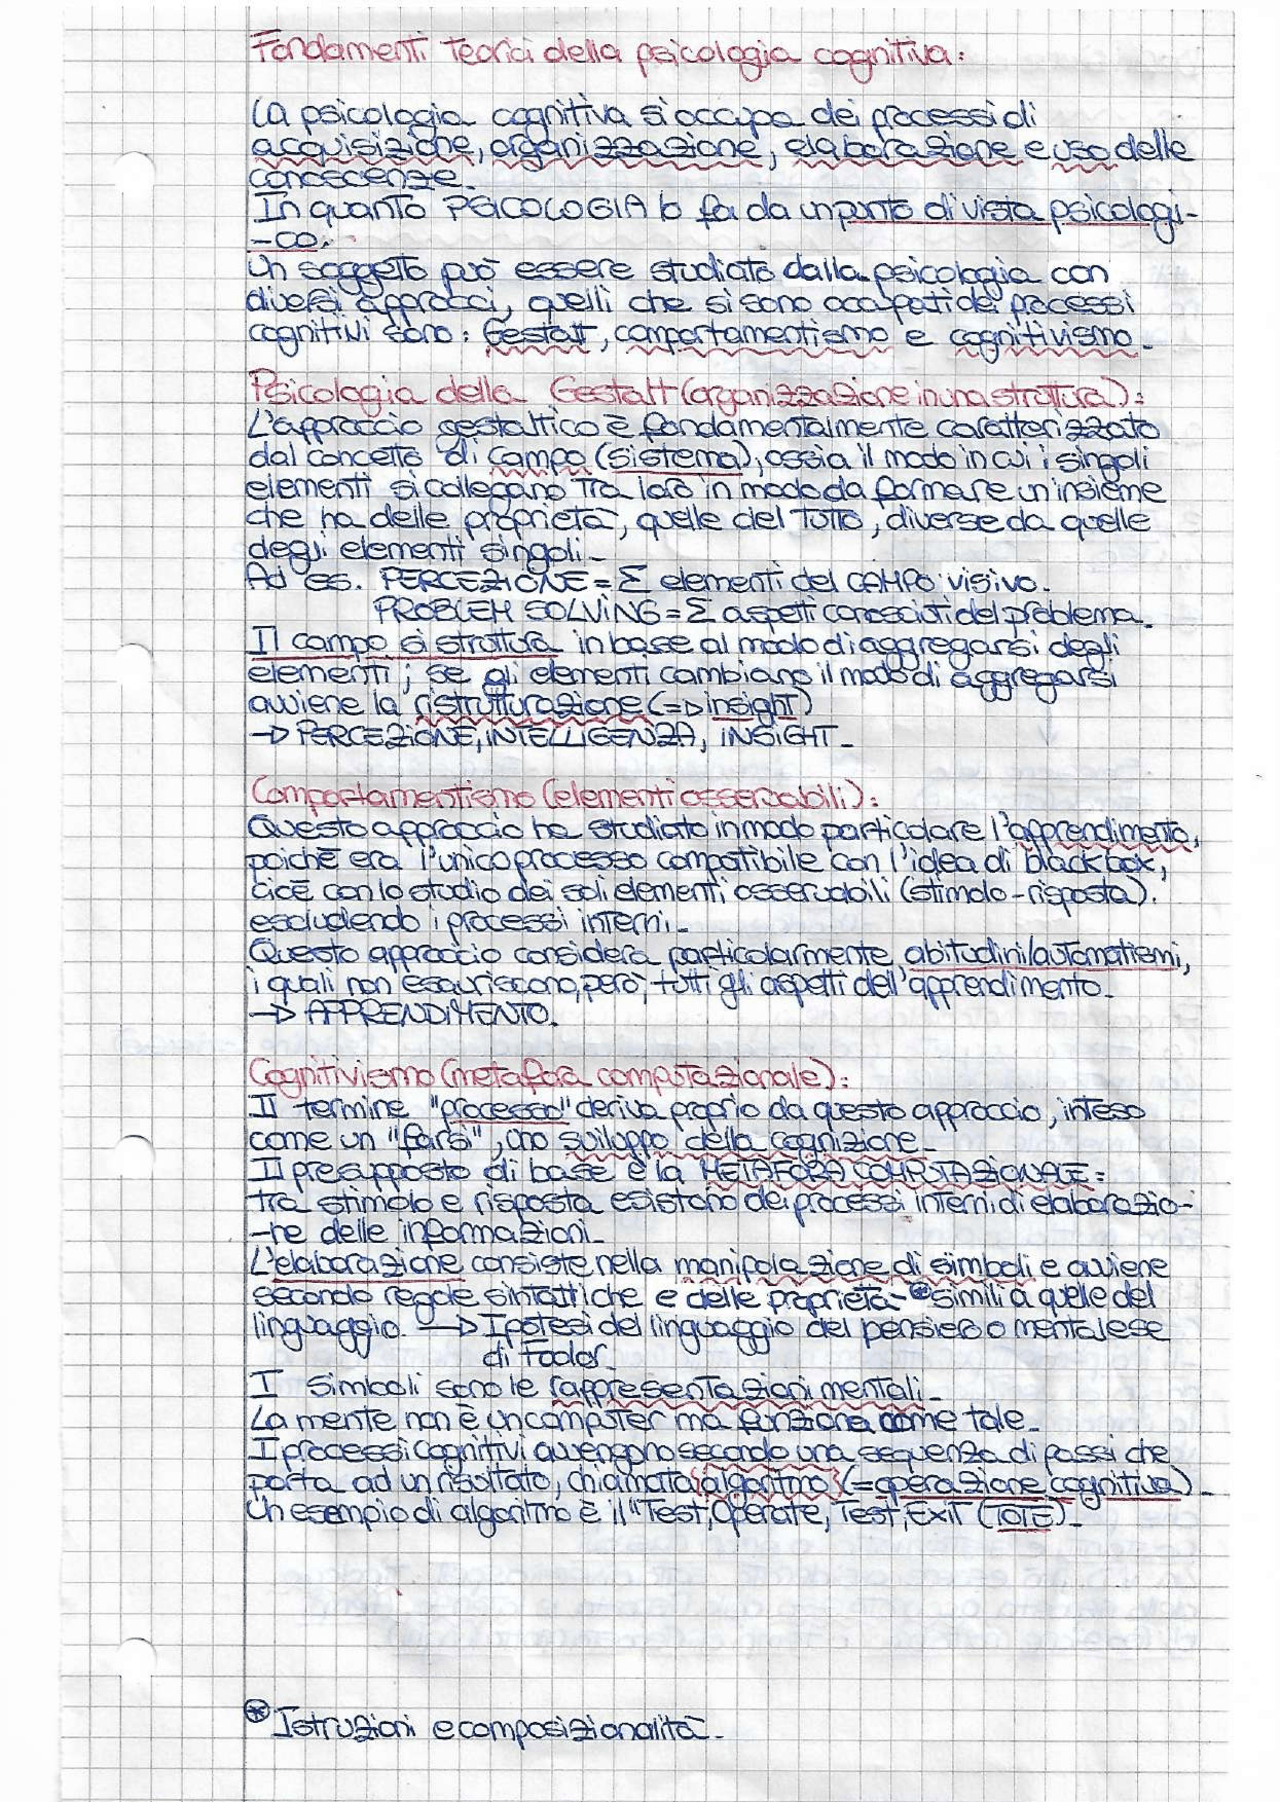 Fondamenti teorici della psicologia cognitiva:
La psicologia cognitiva si occupa dei processi di
acquisizione, organizzazione, elaborazione e uso delle
conoscenze.
In quanto PSICOLOGIA lo fa da un punto di vista psicologi-
-co.
Un soggetto può essere studiato dalla psicologia con
diversi approcci, quelli che si sono occupati dei processi
cognitivi sono: Gestalt, comportamentismo e cognitivismo.
Psicologia della Gestalt (organizzazione in una struttura):
L'approccio gestaltico è fondamentalmente caratterizzato
dal concetto di campo (sistema), ossia il modo in cui i singoli
elementi si collegano tra loro in modo da formare un'insieme
che ha delle proprietà, quelle del TUTTO, diverse da quelle
degli elementi singoli.
Ad es. PERCEZIONE = Σ elementi del CAMPO visivo.
PROBLEM SOLVING = Σ aspetti conosciuti del problema.
Il campo si struttura in base al modo di aggregarsi degli
elementi; se gli elementi cambiano il modo di aggregarsi
avviene la ristrutturazione (=> insight)
-> PERCEZIONE, INTELLIGENZA, INSIGHT.
Comportamentismo (elementi osservabili):
Questo approccio ha studiato in modo particolare l'apprendimento,
poichè era l'unico processo compatibile con l'idea di black box,
cioè con lo studio dei soli elementi osservabili (stimolo-risposta).
escludendo i processi interni.
Questo approccio considera particolarmente abitudini/automatismi,
i quali non esauriscono, però, tutti gli aspetti dell'apprendimento.
-> APPRENDIMENTO.
Cognitivismo (metafora computazionale):
Il termine "processo" deriva proprio da questo approccio, inteso
come un "farsi", uno sviluppo della cognizione.
Il presupposto di base è la METAFORA COMPUTAZIONALE:
tra stimolo e risposta esistono dei processi interni di elaborazio-
-ne delle informazioni.
L'elaborazione consiste nella manipolazione di simboli e avviene
secondo regole sintattiche e delle proprietà ⊛ simili a quelle del
linguaggio. -> Ipotesi del linguaggio del pensiero o mentalese
di Fodor.
I simboli sono le rappresentazioni mentali.
La mente non è un computer ma funziona come tale.
I processi cognitivi avvengono secondo una sequenza di passi che
porta ad un risultato, chiamata {algoritmo} (= operazione cognitiva).
Un esempio di algoritmo è il "Test, Operate, Test, Exit (TOTE).
⊛ Istruzioni e composizionalità.